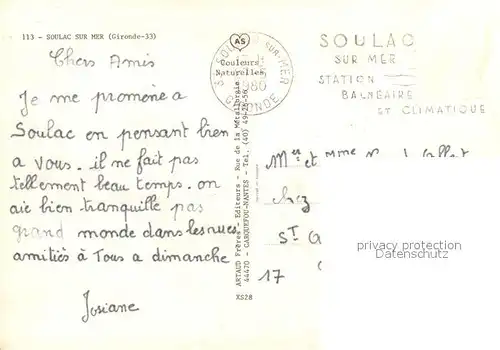 113 - SOULAC SUR MER (Gironde-33)
Chers Amis
Je me promène a
Soulac en pensant bien
a vous. il ne fait pas
tellement beau temps. on
aie bien tranquille pas
grand monde dans les rues.
amitiés à Tous a dimanche
Josiane
AS
Couleurs
Naturelles
SOULAC-SUR-MER
GIRONDE
1980
ARTAUD Frères - Editeurs - Rue de la Métallurgie
44470 - CARQUEFOU-NANTES - Tel. (40) 49-28-56
XS28
SOULAC
SUR MER
STATION
BALNÉAIRE
ET CLIMATIQUE
Mer et Mme
chez
ST G
17
privacy protection
www.delcampe.net